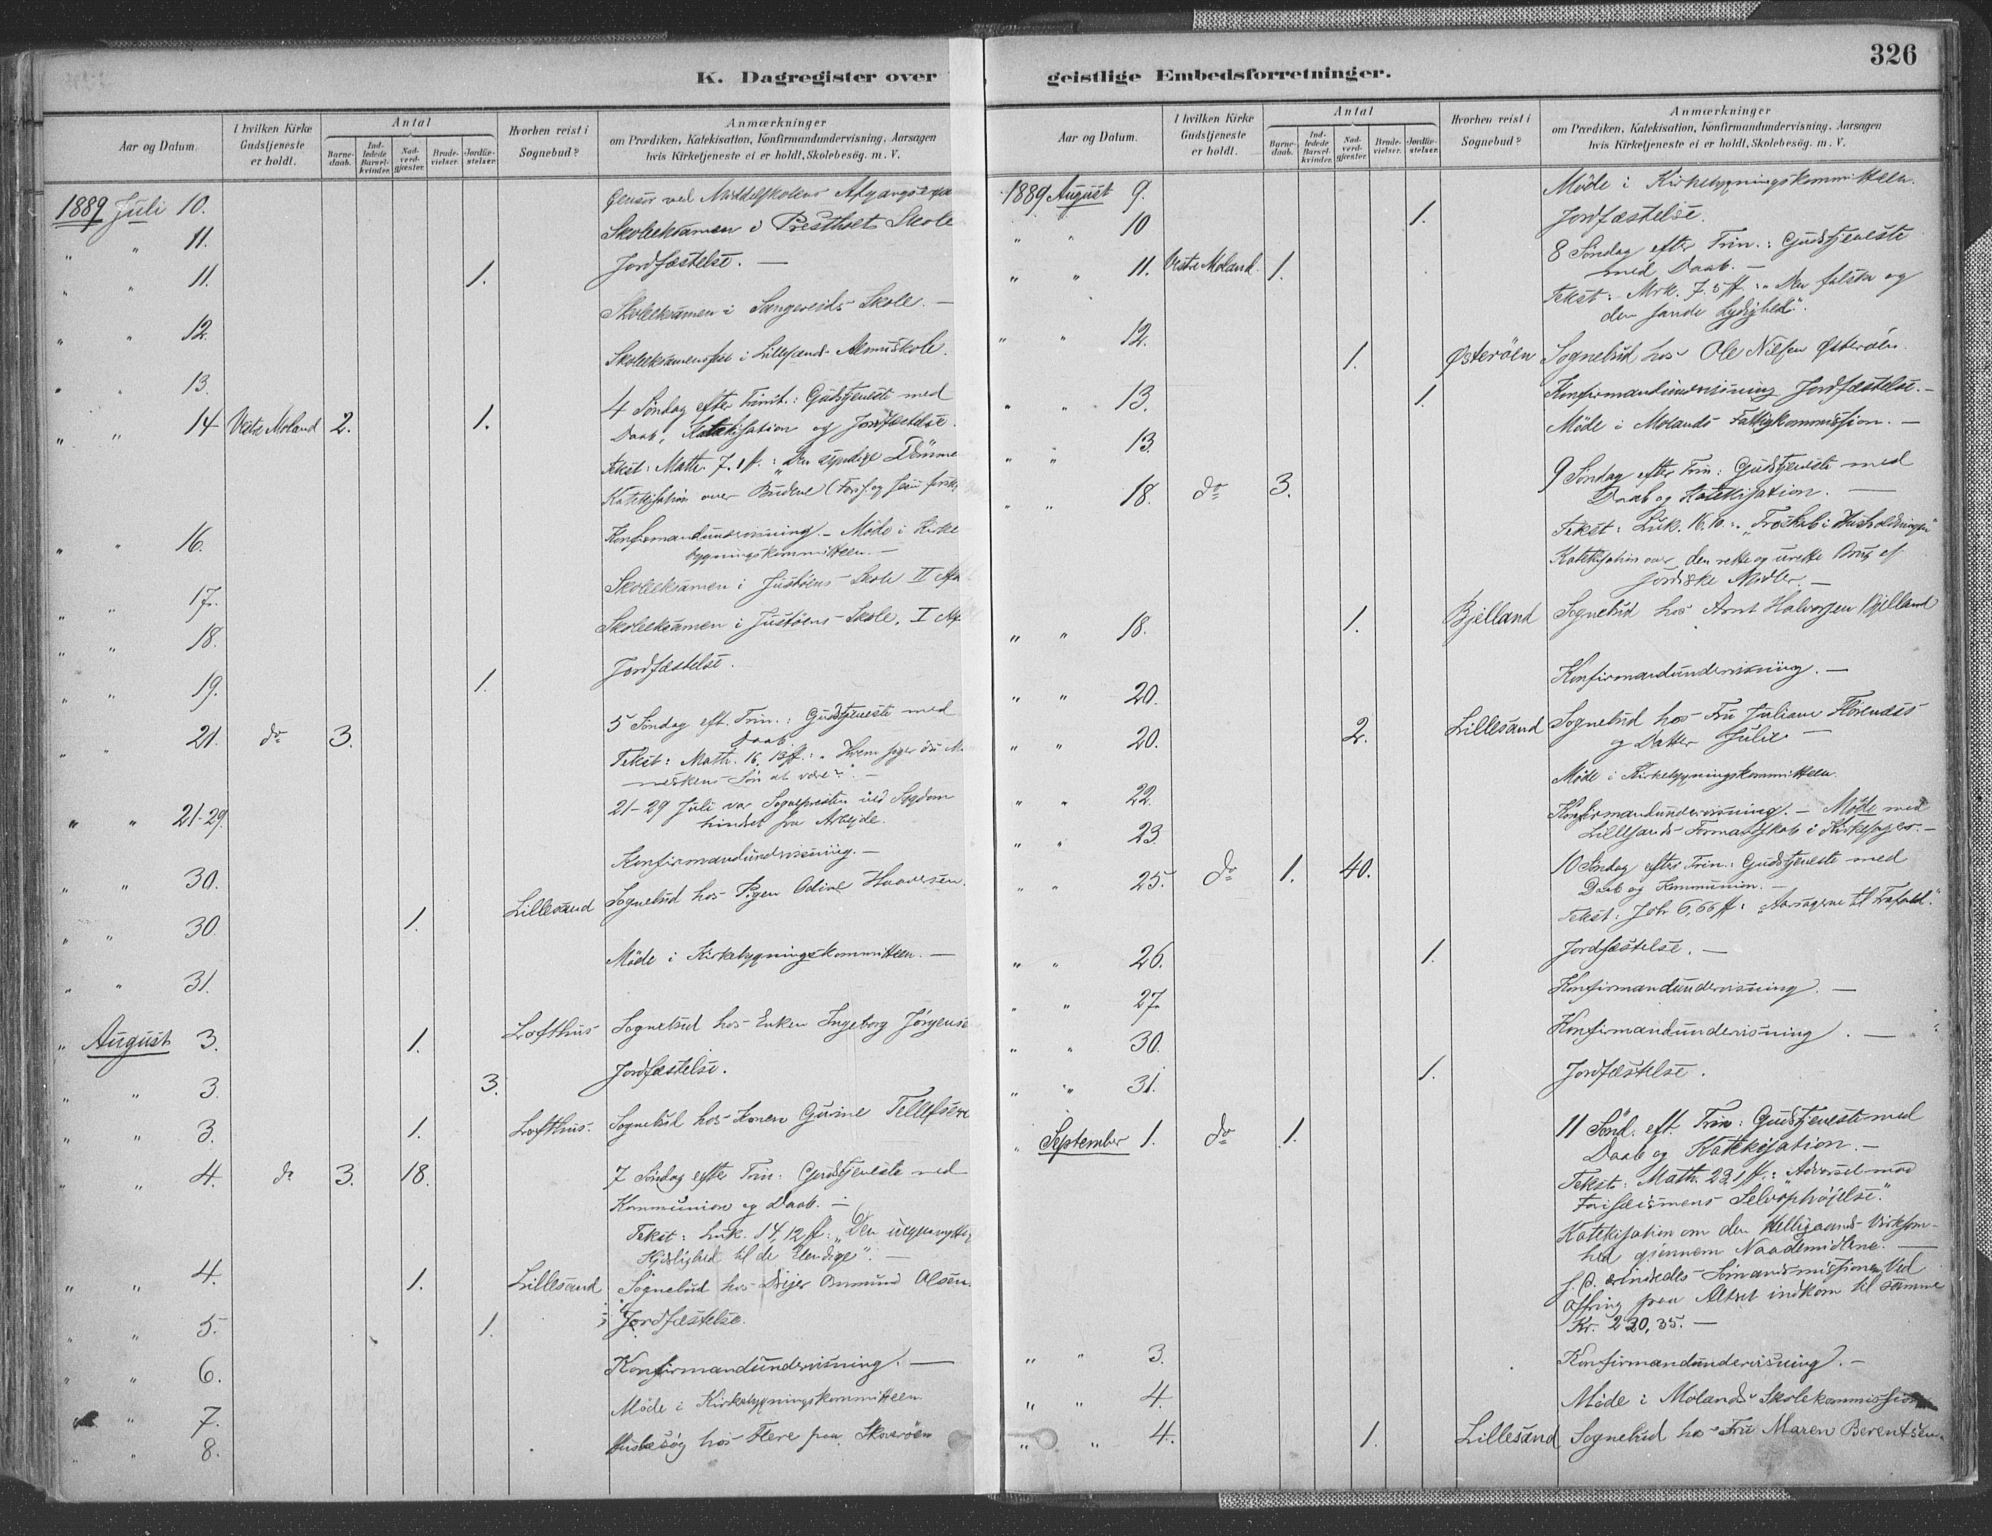 326
K. Dagregister over
Aar og Datum.
I hvilken Kirke Gudstjeneste er holdt.
Antal
Barnedaab.
Indledede Barselkvinder.
Nadverdgjester.
Brudevielser.
Jordfæstelser.
Hvorhen reist i Sognebud?
Anmærkninger
om Prædiken, Katekisation, Konfirmandundervisning, Aarsagen
hvis Kirketjeneste ei er holdt, Skolebesög. m. V.
1889 Juli 10. Censor ved Middelskolens
" " 11. Skoleeksamen i Prestholt Skole
" " 11. 1. Jordfæstelse. —
" " 12. Skoleeksamen i Sangereids Skole. —
" " 13. Skoleeksamensfest i Lillesands Almuskole.
" " 14 Vestre Moland 2. 1. 4 Søndag efter Trinit.: Gudstjeneste med
Daab, Katekisation og Jordfæstelse.
Tekst: Matth. 7, 1 ff.: "Den syndige Dömme
Katekisation over Budene
" " 16. Konfirmandundervisning. — Møde i Kirke
bygningskommitteen. —
" " 17. Skoleeksamen i Justøens Skole II
" " 18. Skoleeksamen i Justøens Skole, I
" " 19. 1. Jordfæstelse.
" " 21. do 3. 5 Søndag eft. Trin.: Gudstjeneste med
Daab
Tekst: Math. 16, 13 ff.: "Hvem siger de Men
neskens Søn at være". —
" " 21-29. 21-29 Juli var Sognepresten ved Sygdom
hindret fra Arbejde.
" " 30. Konfirmandundervisning. —
" " 30. 1. Lillesand Sognebud hos Pigen Odine Haaversen.
" " 31. Møde i Kirkebygningskommitteen. —
" August 3. 1. Lofthus Sognebud hos Enken Ingeborg Jörgense
" " 3. 3. Jordfæstelse.
" " 3. 1. Lofthus. Sognebud hos Konen Gurine Tellefsen
" " 4. do 3. 18. 7 Søndag efter Trin: Gudstjeneste med
Kommunion og Daab. —
Tekst: Luk. 14, 12 ff: "Den
til de Elendige". —
" " 4. 1. Lillesand Sognebud hos Onmund Olsen.
" " 5. 1. Jordfæstelse.
" " 6. Konfirmandundervisning. —
" " 7. Møde i Kirkebygningskommitteen
" " 8. Husbesøg hos Flere paa Skoverøen
geistlige Embedsforretninger.
Aar og Datum.
I hvilken Kirke Gudstjeneste er holdt.
Antal
Barnedaab.
Indledede Barselkvinder.
Nadverdgjester.
Brudevielser.
Jordfæstelser.
Hvorhen reist i Sognebud?
Anmærkninger
om Prædiken, Katekisation, Konfirmandundervisning, Aarsagen
hvis Kirketjeneste ei er holdt, Skolebesög. m. V.
1889 August 9. Møde i Kirkebygningskommitteen.
" " 10 1. Jordfæstelse.
" " 11. Vestre Moland. 1. 8 Søndag efter Trin.: Gudstjeneste
med Daab. —
Tekst: Mrk. 7. 5 ff.: "Den falske og
den sande Lydighed".
" " 12. 1. Østerøen Sognebud hos Ole Nilsen Østerøen.
" " 13. 1. Konfirmandundervisning Jordfæstelse. —
" " 13. Møde i Molands Fattigkommission. —
" " 18. do 3. 9 Søndag efter Trin: Gudstjeneste med
Daab og Katekisation. —
Tekst: Luk. 16, 10: "Troskab i Husholdningen"
Katekisation over den rette og urette Brug af
Jordiske Midler. —
" " 18. 1. Bjelland Sognebud hos Arnt Halvorsen Bjelland
" " 20. Konfirmandundervisning. —
" " 20. 2. Lillesand Sognebud hos Fru Juliane Florenæs
og Datter Julie —
" " 22. Møde i Kirkebygningskommitteen.
" " 23. Konfirmandundervisning. — Møde med
Lillesands Formandskab i Kirkesager. —
" " 25. do 1. 40. 10 Søndag efter Trin: Gudstjeneste med
Daab og Kommunion. —
Tekst: Joh 6, 66 ff: "Aarsagerne til Frafald."
" " 26. 1. Jordfæstelse. —
" " 27. Konfirmandundervisning. —
" " 30. Konfirmandundervisning. —
" " 31. 1. Jordfæstelse.
" September 1. do 1. 11 Sønd. eft. Trin: Gudstjeneste med
Daab og Katekisation. —
Tekst: Math. 23, 1 ff.: "Advarsel mod
Farisæismens Selvophøjelse."
Katekisation om den Helligaands Virksom-
hed gjennem Naademidlene. —
Sømandsmissionen. Ved
Offring paa Altret indkom til samme
Kr. 220,35. —
" " 3. Konfirmandundervisning. —
" " 4. Møde i Molands Skolekommission
" " 4. 1. Lillesand Sognebud hos Fru Maren Berentsen.